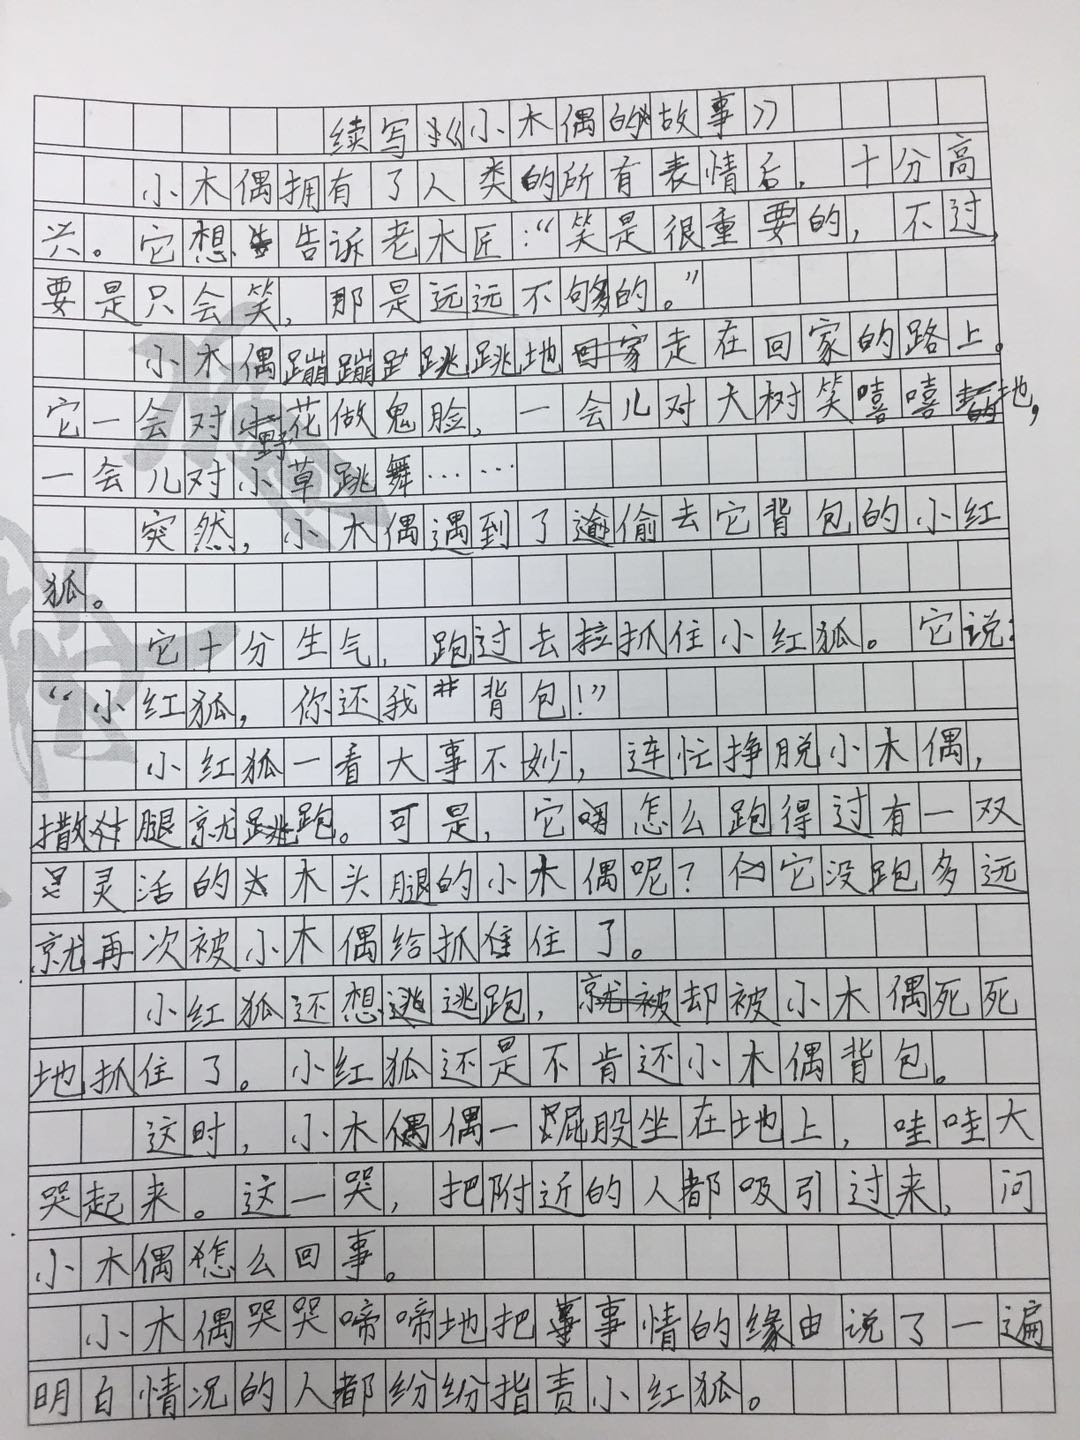 续写《小木偶的故事》
小木偶拥有了人类的所有表情后，十分高
兴。它想告诉老木匠：“笑是很重要的，不过，
要是只会笑，那是远远不够的。”
小木偶蹦蹦跳跳地走在回家的路上。
它一会对野花做鬼脸，一会儿对大树笑嘻嘻地，
一会儿对小草跳舞……
突然，小木偶遇到了偷去它背包的小红
狐。
它十分生气，跑过去抓住小红狐。它说：
“小红狐，你还我背包！”
小红狐一看大事不妙，连忙挣脱小木偶，
撒腿就跑。可是，它怎么跑得过有一双
灵活的木头腿的小木偶呢？它没跑多远
就再次被小木偶给抓住了。
小红狐还想逃跑，却被小木偶死死
地抓住了。小红狐还是不肯还小木偶背包。
这时，小木偶一屁股坐在地上，哇哇大
哭起来。这一哭，把附近的人都吸引过来，问
小木偶怎么回事。
小木偶哭哭啼啼地把事情的缘由说了一遍
明白情况的人都纷纷指责小红狐。